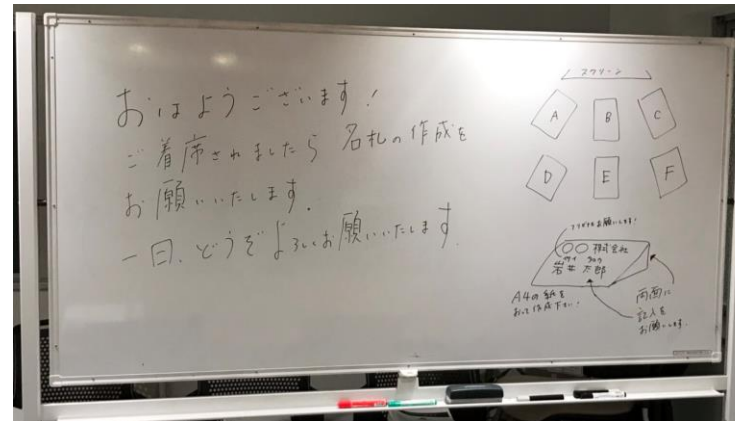 おはようございます！
ご着席されましたら 名札の作成を
お願いいたします．
一日、どうぞよろしくお願いいたします．
スクリーン
A B C
D E F
フリガナもお願いします！
○○株式会社
タロウ
岩井 太郎
A4の紙を
おって作成下さい！
両面に
記入を
お願いします．